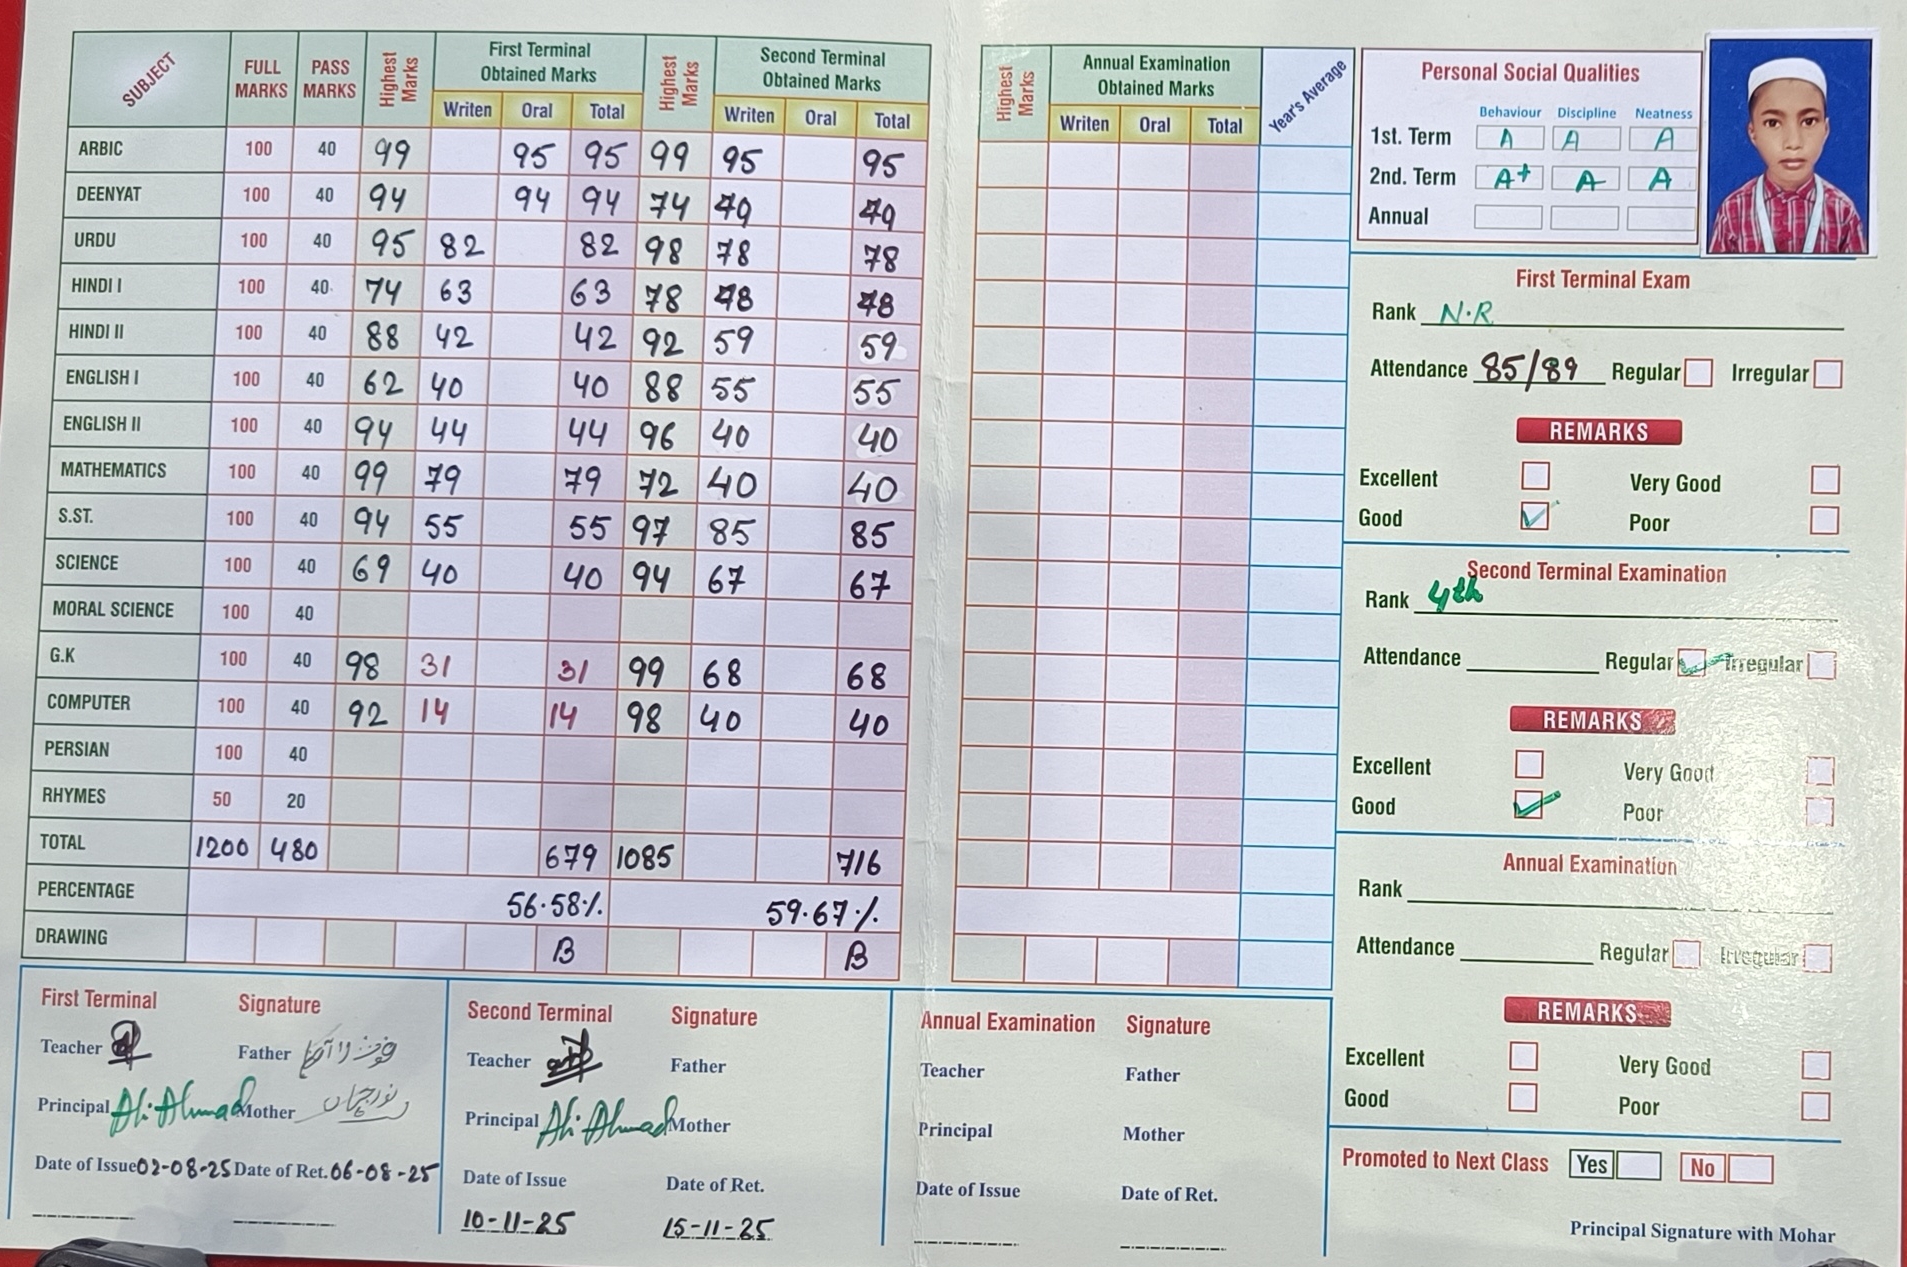 SUBJECT FULL MARKS PASS MARKS Highest Marks First Terminal Obtained Marks Highest Marks Second Terminal Obtained Marks
Writen Oral Total Writen Oral Total
ARBIC 100 40 99 95 95 99 95 95
DEENYAT 100 40 94 94 94 74 49 49
URDU 100 40 95 82 82 98 78 78
HINDI I 100 40 74 63 63 78 48 48
HINDI II 100 40 88 42 42 92 59 59
ENGLISH I 100 40 62 40 40 88 55 55
ENGLISH II 100 40 94 44 44 96 40 40
MATHEMATICS 100 40 99 79 79 72 40 40
S.ST. 100 40 94 55 55 97 85 85
SCIENCE 100 40 69 40 40 94 67 67
MORAL SCIENCE 100 40
G.K 100 40 98 31 31 99 68 68
COMPUTER 100 40 92 14 14 98 40 40
PERSIAN 100 40
RHYMES 50 20
TOTAL 1200 480 679 1085 716
PERCENTAGE 56.58% 59.67%
DRAWING B B
First Terminal Signature
Teacher Father
Principal Ali Ahmad Mother نورجہاں
Date of Issue 02-08-25 Date of Ret. 06-08-25
Second Terminal Signature
Teacher Father
Principal Ali Ahmad Mother
Date of Issue Date of Ret.
10-11-25 15-11-25
Highest Marks Annual Examination Obtained Marks Year's Average
Writen Oral Total
Annual Examination Signature
Teacher Father
Principal Mother
Date of Issue Date of Ret.
Personal Social Qualities
Behaviour Discipline Neatness
1st. Term A A A
2nd. Term A+ A A
Annual
First Terminal Exam
Rank N.R
Attendance 85/89 Regular Irregular
REMARKS
Excellent Very Good
Good Poor
Second Terminal Examination
Rank 4th
Attendance Regular Irregular
REMARKS
Excellent Very Good
Good Poor
Annual Examination
Rank
Attendance Regular Irregular
REMARKS
Excellent Very Good
Good Poor
Promoted to Next Class Yes No
Principal Signature with Mohar